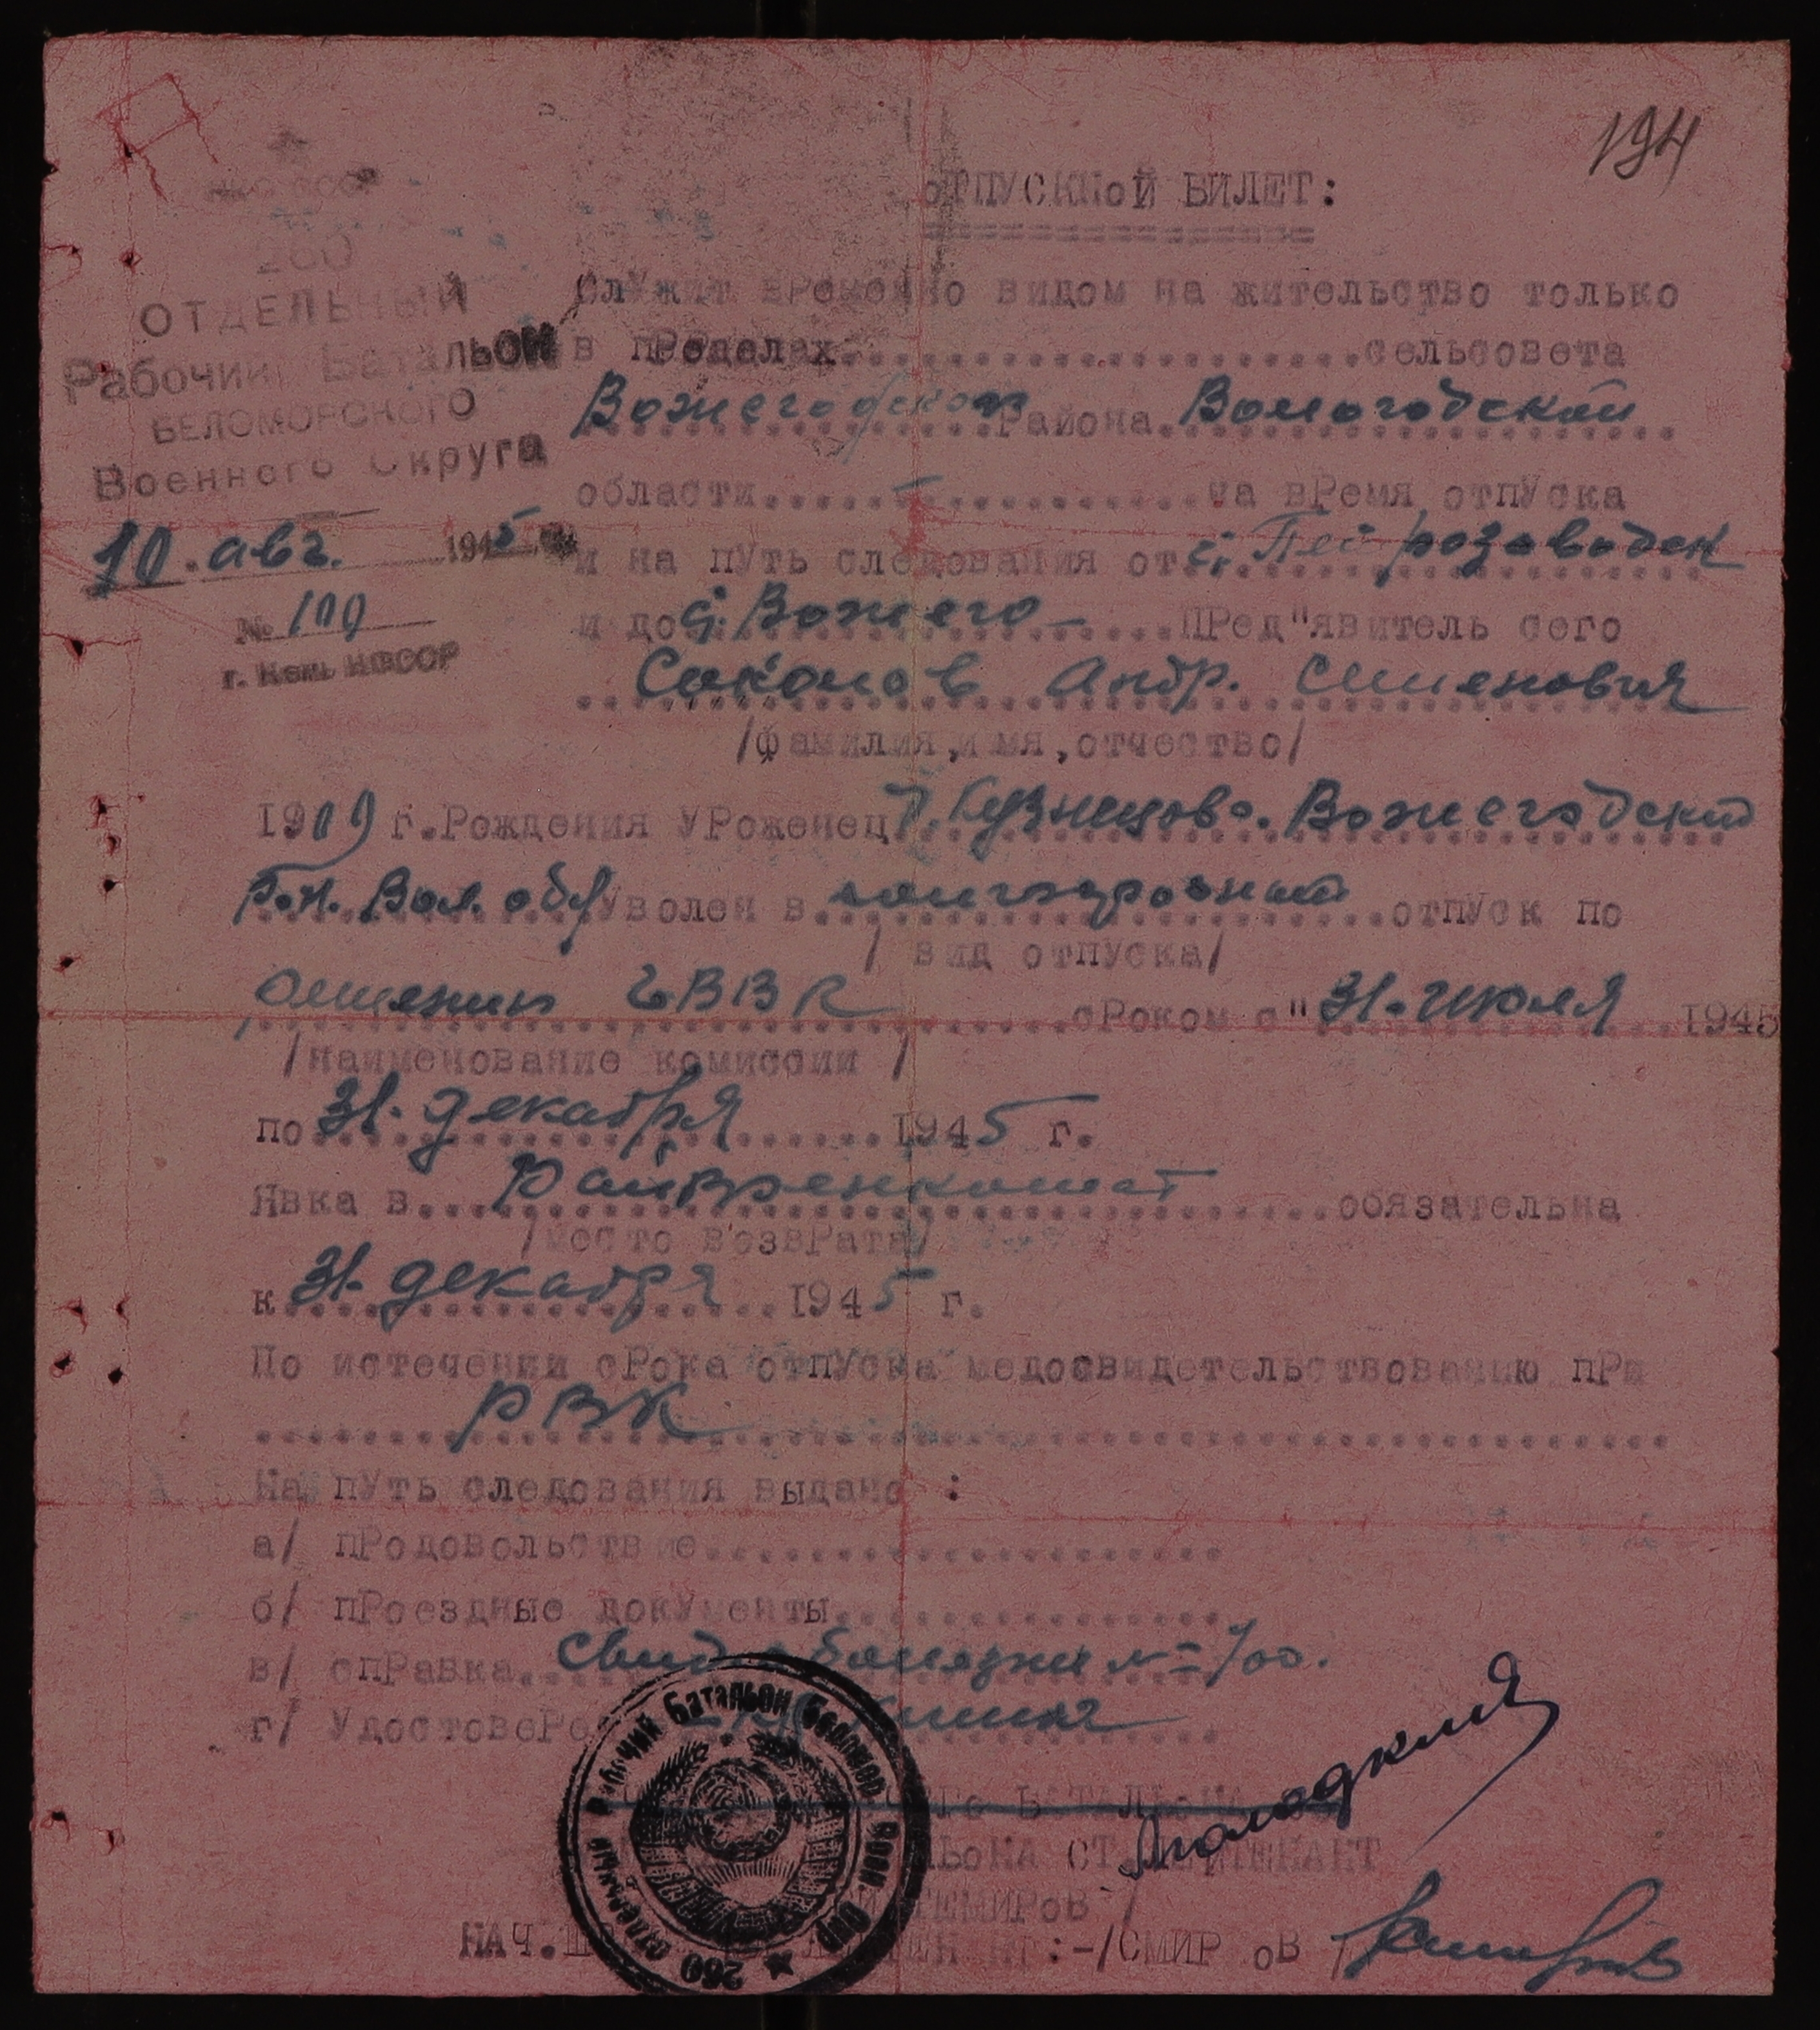 194
НКО СССР
260
ОТДЕЛЬНЫЙ
Рабочий Батальон
БЕЛОМОРСКОГО
Военного Округа
10. авг. 1945
№ 109
г. Кемь КФССР
ОТПУСКНОЙ БИЛЕТ:
Служит временно видом на жительство только
в пределах....................сельсовета
Вожегодском района Вологодской
области................на время отпуска
и на путь следования от с. Петрозаводск
и до с. Вожего- Пред"явитель сего
Соколов Андр. Семенович
/фамилия, имя, отчество/
1909 г. Рождения Уроженец д. Кузнецово. Вожегодский
Р-н. Вол. обл Уволен в отпуск по
/ вид отпуска/
ГВВК сроком с " 31. июля 1945
/наименование комиссии /
по 31. декабря 1945 г.
Явка в Райвоенкомат обязательна
/место возврата/
к 31. декабря 1945 г.
По истечении срока отпуска медосвидетельствованию при
РВК
На путь следования выдано :
а/ продовольствие....................
б/ проездные документы...............
в/ справка. Свид о болезни № 700.
г/ Удостовере
БАТАЛЬОНА
ЛЬОНА СТ.ЛЕЙТЕНАНТ
ТЕМИРОВ /
НАЧ.Ш :-/СМИРНОВ /
260 отдельный Рабочий Батальон Беломор. Воен. Окр